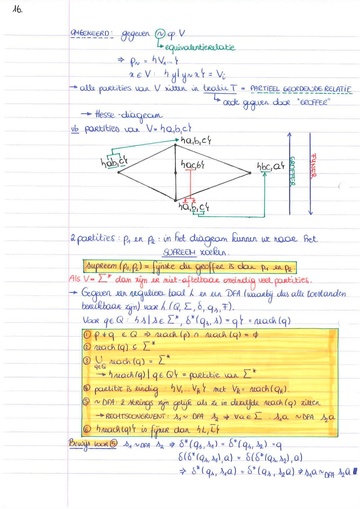 16.
OMGEKEERD: gegeven ~ op V
↳ equivalentierelatie
⇒ P~ = {V~}
x ∈ V: {y | y ~ x} = V
→ alle partities van V zitten in tralie T = PARTIEEL GEORDENDE RELATIE
↳ orde gegeven door "GROFFER"
→ Hesse-diagram
vb partities van V = {a,b,c}
{a,b,c}
{ab,c} {ac,b} {bc,a}
{a,b,c}
GROFFER
FIJNER
2 partities: P1 en P2: in het diagram kunnen we naar het
SUPREEM zoeken.
Supreem (P1, P2) = fijnste die groffer is dan P1 en P2
Als V = Σ* dan zijn er niet-aftelbaar oneindig veel partities.
→ Gegeven een reguliere taal L en een DFA (waarbij dus alle toestanden
bereikbaar zijn) voor L (Q, Σ, δ, qs, F).
Voor q ∈ Q: {s | s ∈ Σ*, δ*(qs, s) = q} = reach(q)
① p ≠ q ∈ Q ⇒ reach(p) ∩ reach(q) = ∅
② reach(q) ⊆ Σ*
③ ∪ reach(q) = Σ*
q∈Q
→ {reach(q) | q ∈ Q} = partitie van Σ*
④ partitie is eindig
⑤ ~DFA: 2 strings zijn gelijk als ze in dezelfde reach(q) zitten
→ RECHTSCONGRUENT: s1 ~DFA s2 ⇒ ∀a ∈ Σ s1a ~DFA s2a
⑥ {reach(q)} is fijner dan {L, L̄}
Bewijs voor ⑤ s1 ~DFA s2 ⇒ δ*(qs, s1) = δ*(qs, s2) = q
δ(δ*(qs, s1), a) = δ(δ*(qs, s2), a)
⇒ δ*(qs, s1a) = δ*(qs, s2a) ⇒ s1a ~DFA s2a